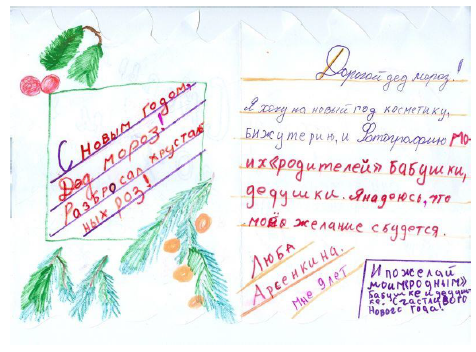 С новым годом,
Дед мороз!
Разбросал хрустал
ных роз!
Дорогой дед мороз!
Я хочу на новый год косметику,
бижутерию, и Фотографию мо-
их «родителей» бабушки,
дедушки. Я надеюсь, что
моё желание сбудется.
Люба
Арсенкина.
мне 9 лет
И пожелай
моим «родным»
бабушке и дедуш-
ке. Счастливого
Нового года!